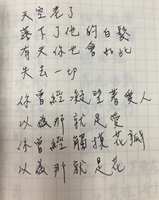 天空老了
落下了他的白髮
有天你也會如此
失去一切
你曾經凝望著愛人
以為那就是愛
你曾經觸摸花瓣
以為那就是花